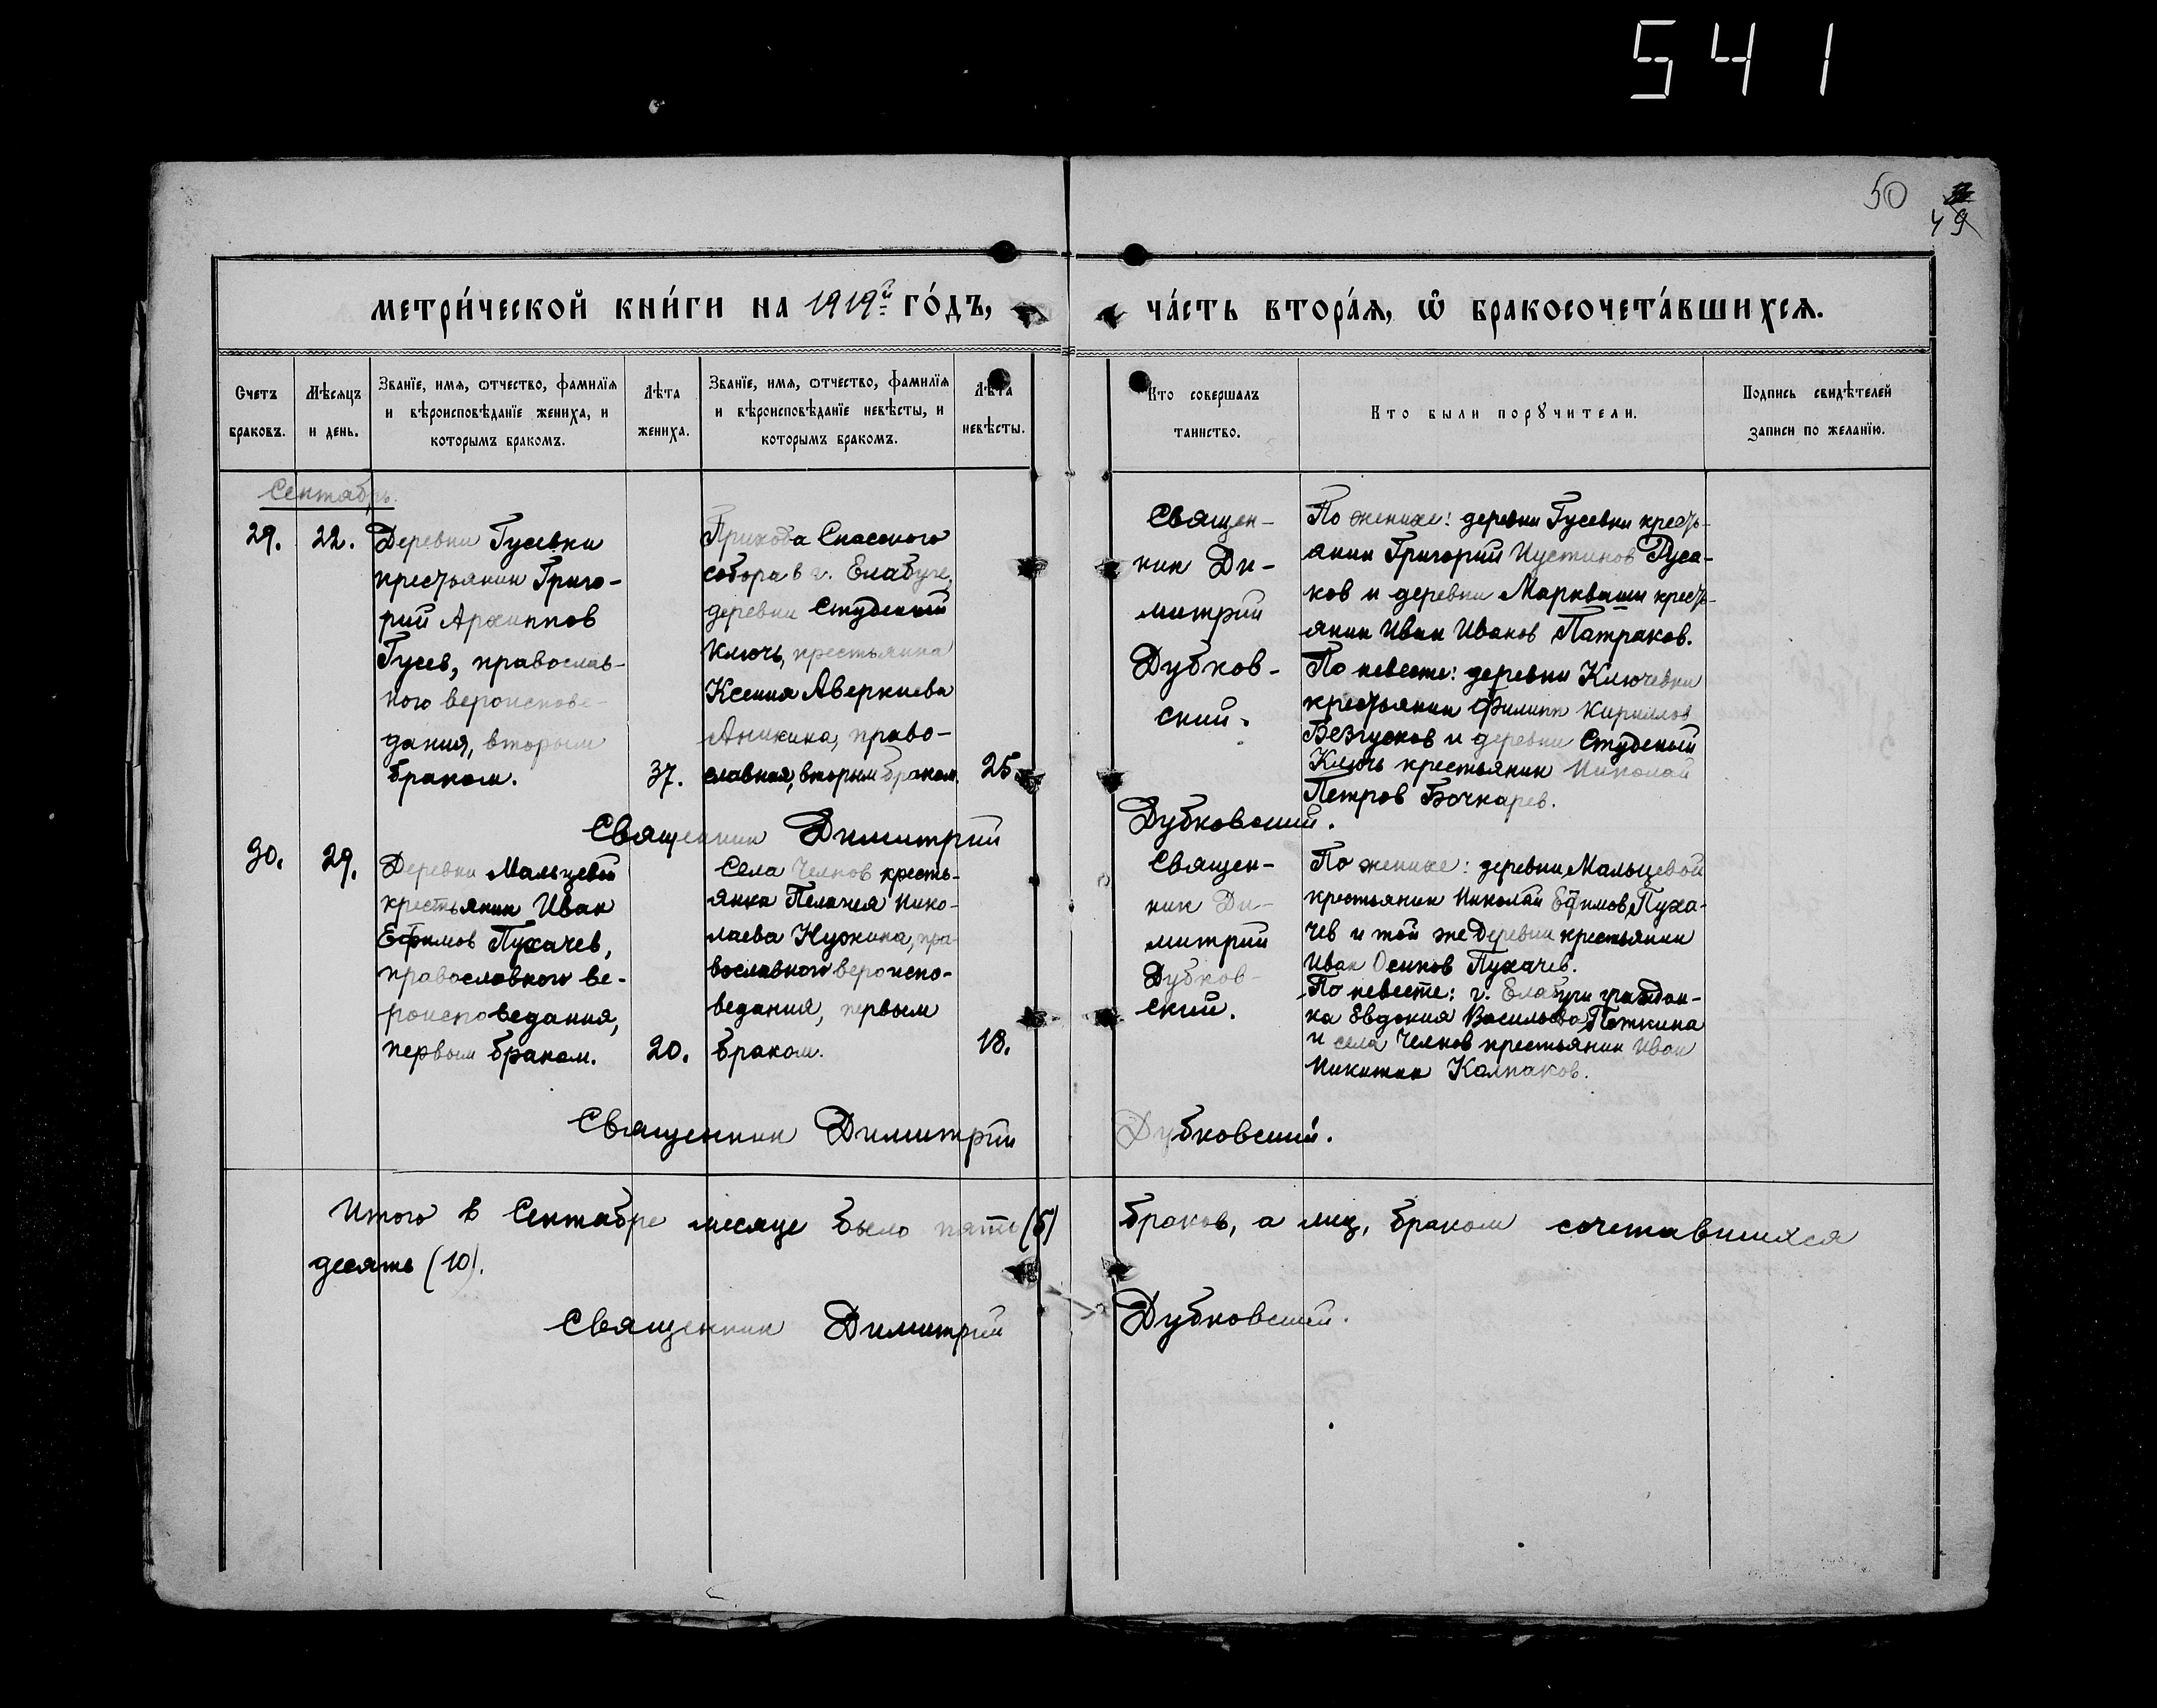 541
50
49
метри́ческой кни́ги на 1919й го́дъ,
ча́сть втора́я, ѡ҆ бракосочета́вшихся.
Счетъ браковъ.
Мѣсяцъ и день.
Званїе, имя, ѡтчество, фамилїя
и вѣроисповѣданїе жениха, и
которымъ бракомъ.
Лѣта жениха.
Званїе, имя, ѡтчество, фамилїя
и вѣроисповѣданїе невѣсты, и
которымъ бракомъ.
Лѣта невѣсты.
Кто совершалъ
таинство.
Кто были порꙋчители.
Подпись свидѣтелей
записи по желанїю.
Сентябрь.
29.
22.
Деревни Гусевки
крестьянин Григо-
рий Архиппов
Гусев, православ-
ного вероиспове-
дания, вторым
браком.
37.
Прихода Спасского
собора в г. Елабуге,
деревни Студеный
Ключь, крестьянка
Ксения Аверкиева
Аникина, право-
славная, вторым браком.
25
Священ-
ник Ди-
митрий
Дубков-
ский.
По женихе: деревни Гусевки кресть-
янин Григорий Иустинов Руса-
ков и деревни Маркваши кресть-
янин Иван Иванов Патраков.
По невесте: деревни Ключевки
крестьянин Филипп Кириллов
Безгусков и деревни Студеный
Ключь крестьянин Николай
Петров Бочкарев.
Священник Димитрий Дубковский.
30.
29.
Деревни Мальцевой
крестьянин Иван
Ефимов Пухачев,
православного ве-
роисповедания,
первым браком.
20.
Села Челнов кресть-
янка Пелагея Нико-
лаева Нужина, пра-
вославного вероиспо-
ведания, первым
браком.
18.
Священ-
ник Ди-
митрий
Дубков-
ский.
По женихе: деревни Мальцевой
крестьянин Николай Ефимов Пуха-
чев и той же деревни крестьянин
Иван Осипов Пухачев.
По невесте: г. Елабуги граждан-
ка Евдокия Васильева Петкина
и села Челнов крестьянин Иван
Никитин Колпаков.
Священник Димитрий Дубковский.
Итого в Сентябре месяце было пять (5) браков, а лиц, браком сочетавшихся
десять (10).
Священник Димитрий Дубковский.